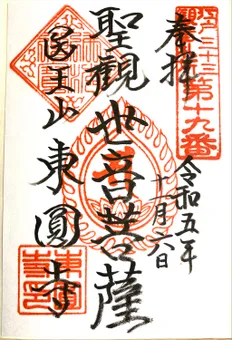 奉拝
江戸三十三
第十九番
令和五年
十一月六日
聖観世音菩薩
医王山 東圓寺
東圓
寺印